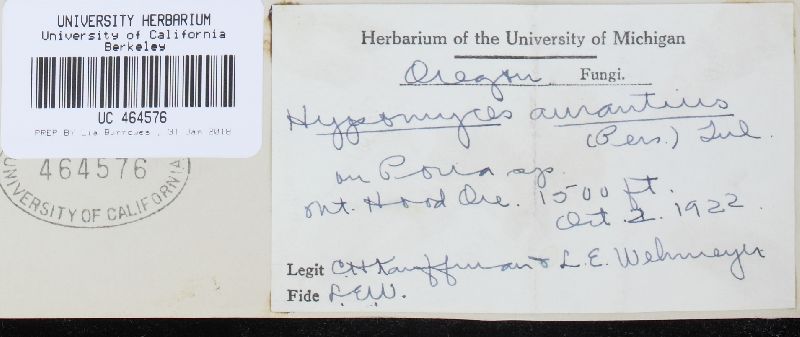 UNIVERSITY HERBARIUM
University of California
Berkeley
UC 464576
PREP BY Lia Burrowes , 31 Jan 2018
464576
UNIVERSITY OF CALIFORNIA
Herbarium of the University of Michigan
Oregon Fungi.
Hypomyces aurantius
(Pers.) Tul.
on Poria sp.
Mt. Hood Ore. 1500 ft.
Oct 2. 1922.
Legit C.H. Kauffman & L.E. Wehmeyer
Fide L.E.W.